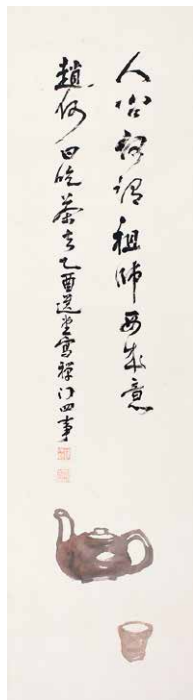 人謂祖師西來意
趙州曰吃茶去乙酉選堂寫禪門四事